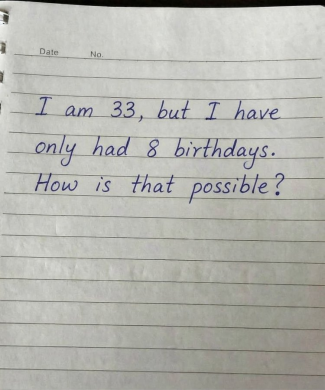 Date No.
I am 33, but I have
only had 8 birthdays.
How is that possible?